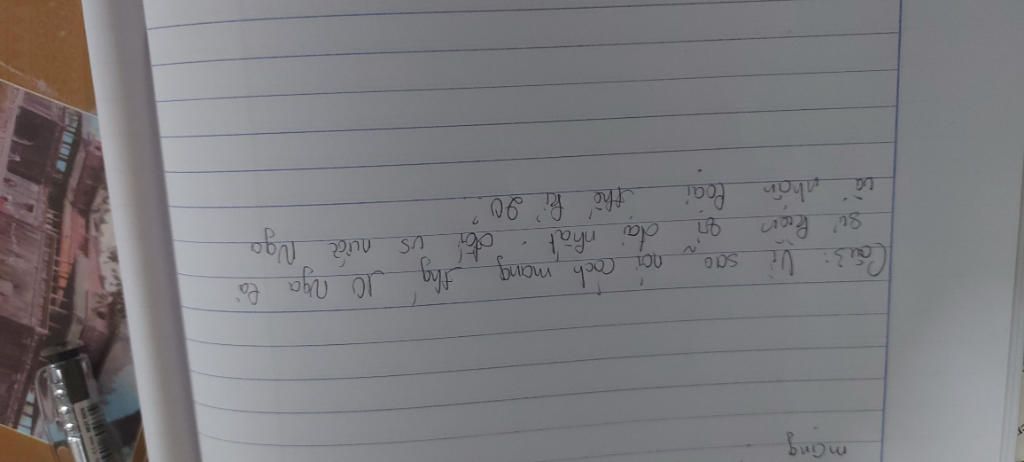 mạng
Câu3: Vì sao nói cách mạng thg 10 Nga là
sự kiện vĩ đại nhất đối vs nước Nga
và nhân loại thế kỉ 20.